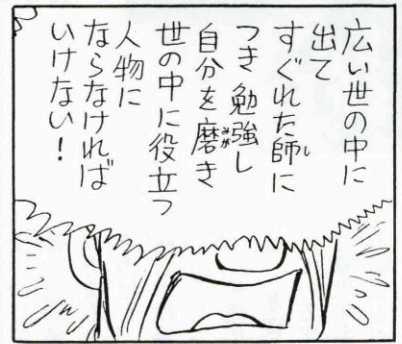 広い世の中に
出て
すぐれた師に
つき勉強し
自分を磨き
世の中に役立つ
人物に
ならなければ
いけない！